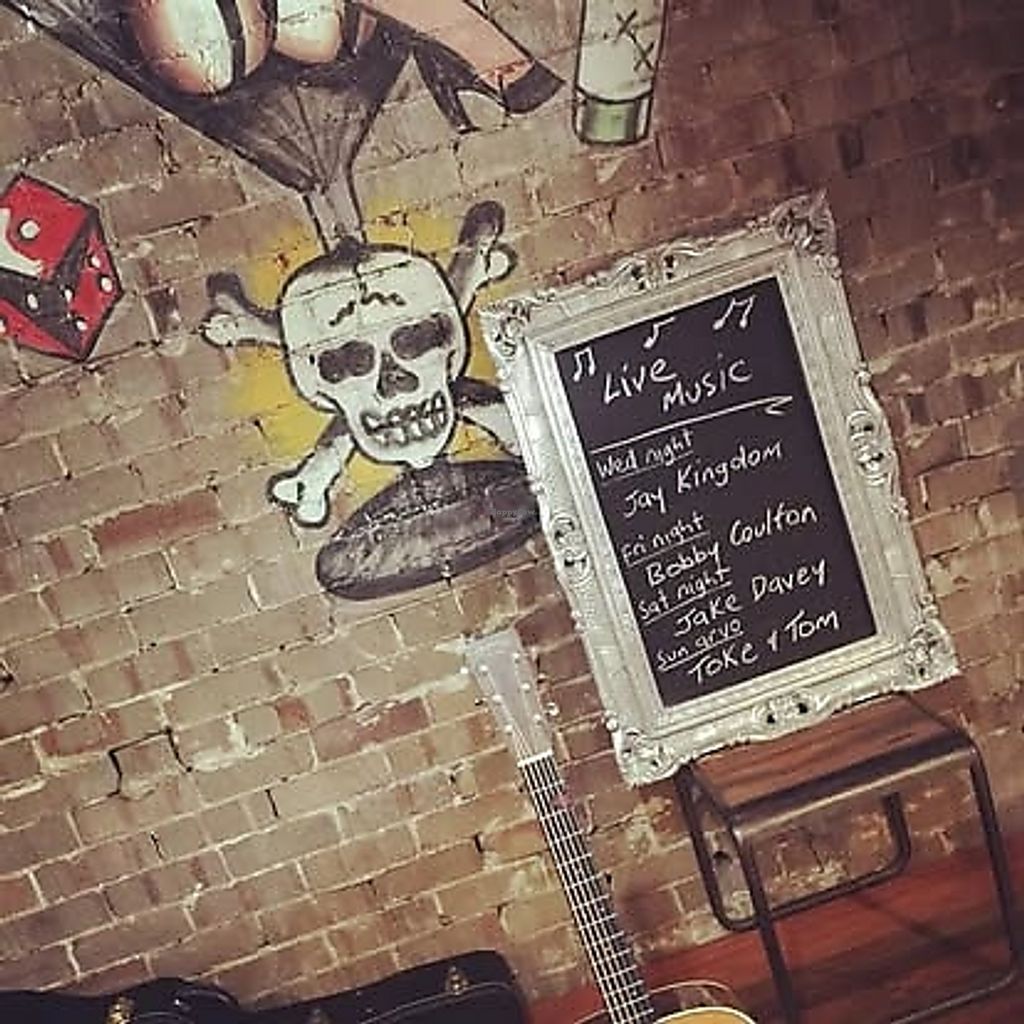 Live
Music
Wed night
Jay Kingdom
Fri night
Bobby Coulton
Sat night
Jake Davey
Sun arvo
Toke & Tom